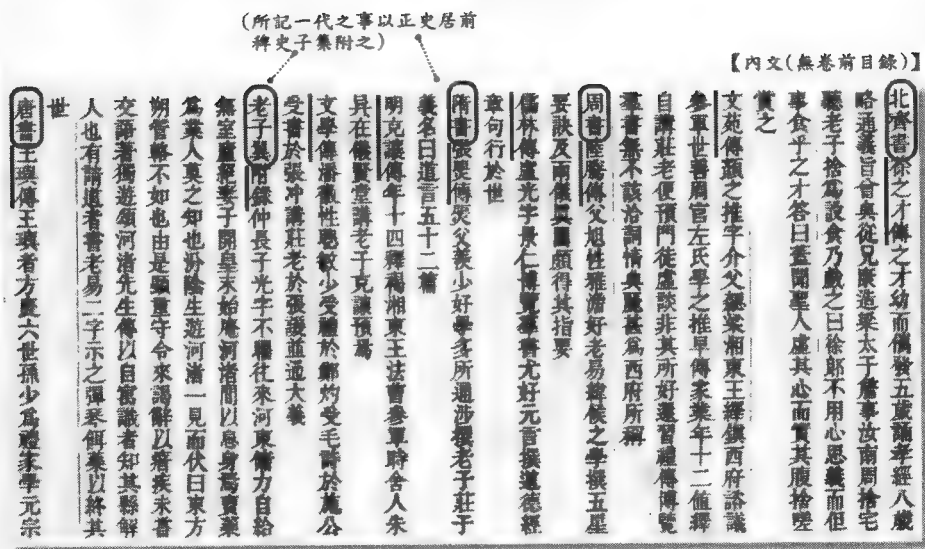 (所記一代之事以正史居前
稗史子集附之)
【內文(無卷前目錄)】
北齊書徐之才傳之才幼而儁發五歲誦孝經八歲
略通義旨曾與從兄康造梁太子詹事汝南周捨宅
聽老子捨為設食乃戲之曰徐郎不用心思義而但
事食乎之才答曰蓋聞聖人虛其心而實其腹捨嗟
賞之
文苑傳顏之推字介父勰梁湘東王繹鎮西府諮議
參軍世善周官左氏學之推早傳家業年十二值繹
自講莊老便預門徒虛談非其所好還習禮傳博覽
羣書無不該洽詞情典麗甚為西府所稱
周書陸騰傳父旭性雅澹好老易緯候之學撰五星
要訣及兩儀真圖頗得其指要
儒林傳盧光字景仁博覽羣書尤好元言撰道德經
章句行於世
隋書張煚傳煚父羨少好學多所通涉撰老子莊子
義名曰道言五十二篇
明克讓傳年十四釋褐湘東王法曹參軍時舍人朱
异在儀賢堂講老子克讓預焉
文學傳潘徽性聰敏少受禮於鄭灼受毛詩於施公
受書於張沖講莊老於張譏並通大義
老子異附錄仲長子光字不曜往來河東傭力自給
無室廬絕妻子開皇末始庵河渚間以息身焉賣藥
為業人莫之知也汾陰生遊河渚一見而伏曰東方
朔管輅不如也由是顯重守令來謁辭以瘖疾未嘗
交語著獨遊頌河渚先生傳以自喻識者知其縣解
人也有請道者書老易二字示之彈琴餌藥以終其
世
唐書王璵傳王璵者方慶六世孫少為禮家學元宗